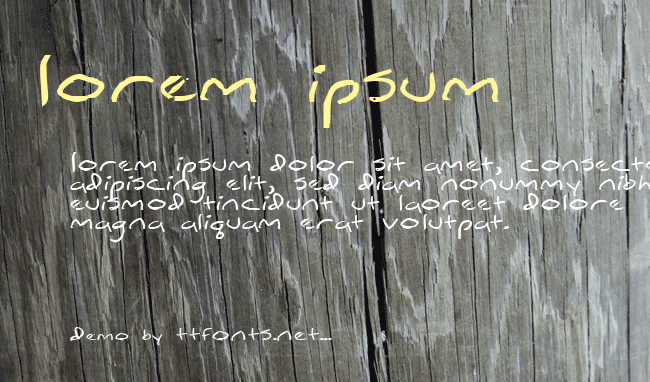 lorem ipsum
lorem ipsum dolor sit amet, consecte
adipiscing elit, sed diam nonummy nibh
euismod tincidunt ut laoreet dolore
magna aliquam erat volutpat.
Demo by ttfonts.net...